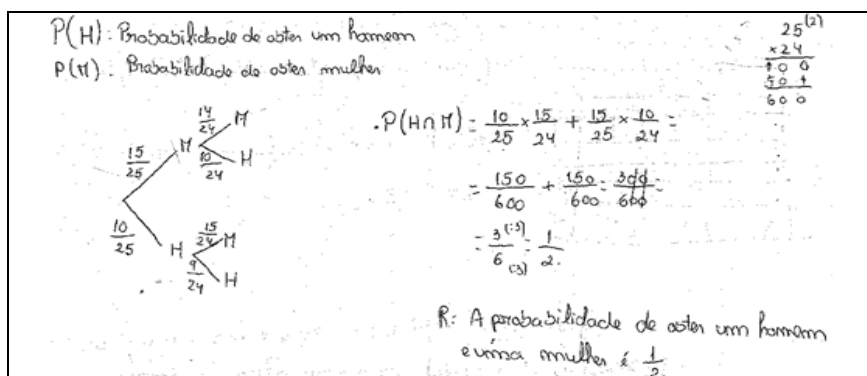 P(H): Probabilidade de obter um homem
P(M): Probabilidade de obter mulher
25 (2)
×24
100
50+
600
15/25 M 14/24 M
10/24 H
10/25 H 15/24 M
9/24 H
.P(H∩M) = 10/25 × 15/24 + 15/25 × 10/24 =
= 150/600 + 150/600 = 300/600 =
= 3 (:3)/6 (:3) = 1/2.
R: A probabilidade de obter um homem
e uma mulher é 1/2